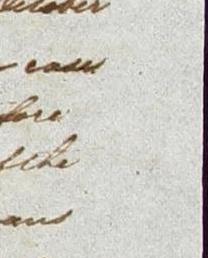 October
case
fore
of the
ans